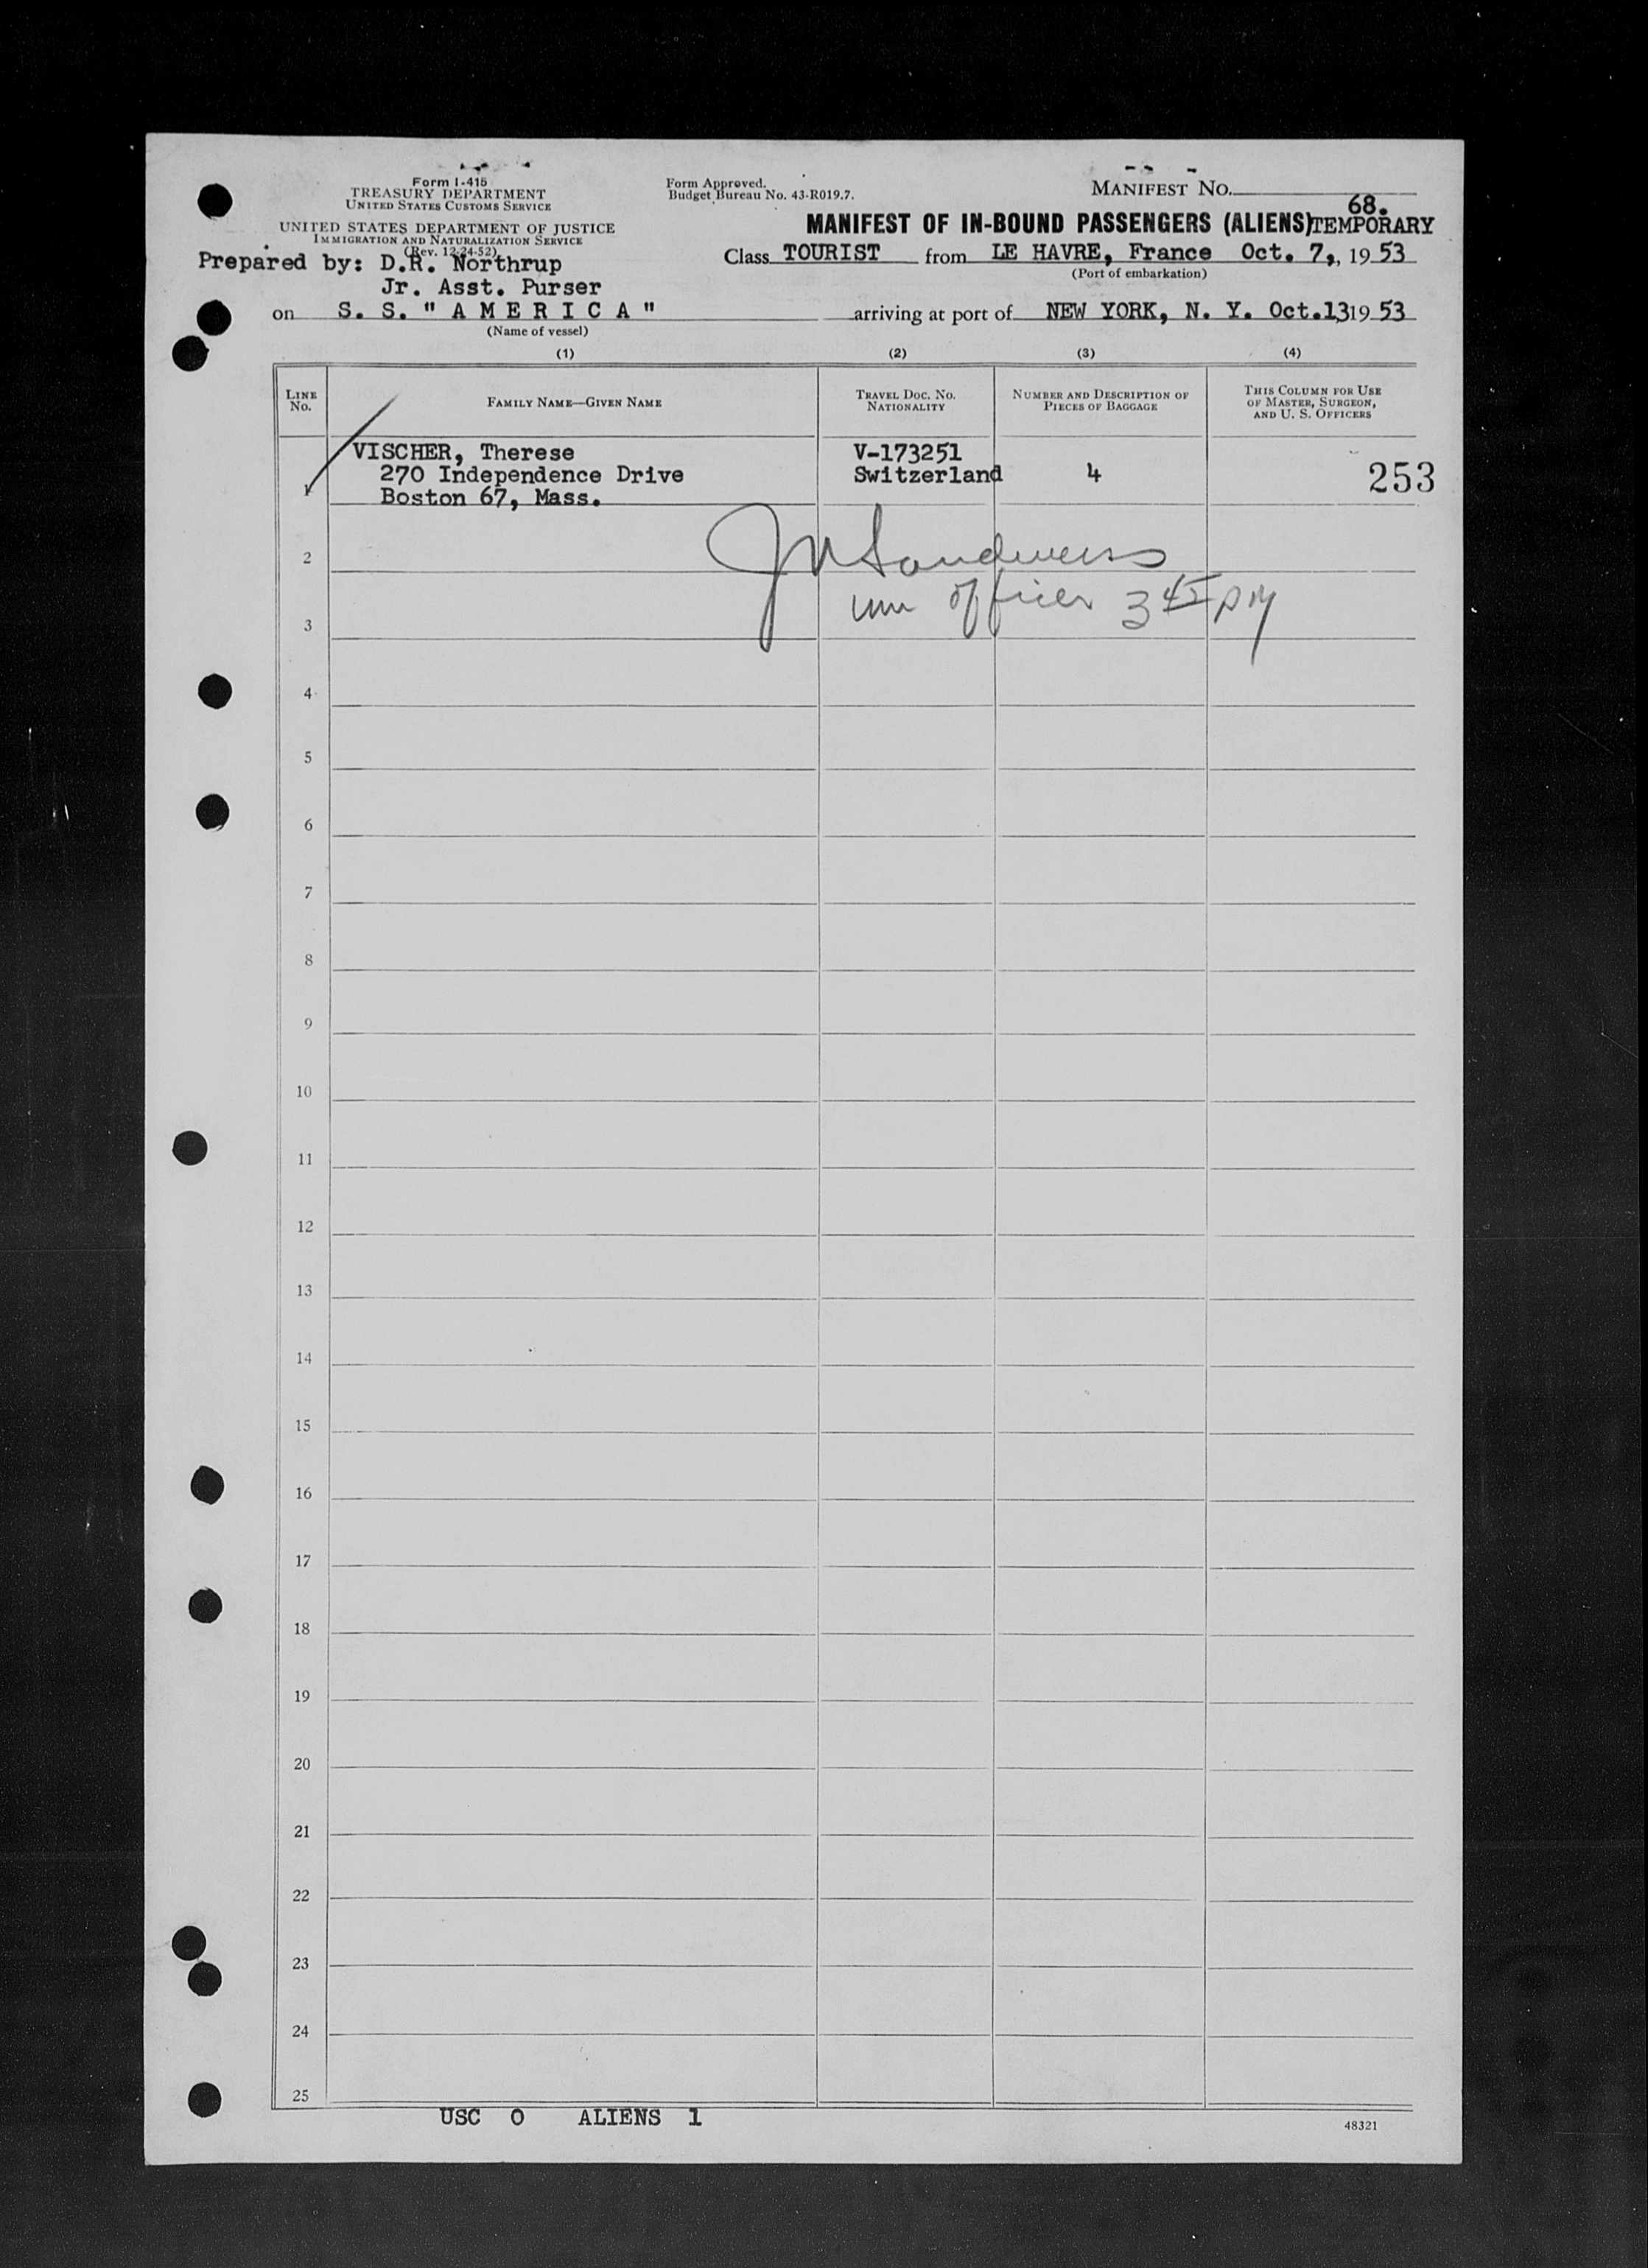 Form I-415
TREASURY DEPARTMENT
UNITED STATES CUSTOMS SERVICE
UNITED STATES DEPARTMENT OF JUSTICE
IMMIGRATION AND NATURALIZATION SERVICE
(Rev. 12-24-52)
Form Approved.
Budget Bureau No. 43-R019.7.
MANIFEST NO.
68.
MANIFEST OF IN-BOUND PASSENGERS (ALIENS) TEMPORARY
Prepared by: D.R. Northrup
Jr. Asst. Purser
Class TOURIST from LE HAVRE, France Oct. 7,, 19 53
(Port of embarkation)
on S. S. " A M E R I C A "
(Name of vessel)
arriving at port of NEW YORK, N. Y. Oct.13 19 53
(1) (2) (3) (4)
LINE No.
FAMILY NAME—GIVEN NAME
TRAVEL DOC. NO. NATIONALITY
NUMBER AND DESCRIPTION OF PIECES OF BAGGAGE
THIS COLUMN FOR USE OF MASTER, SURGEON, AND U. S. OFFICERS
VISCHER, Therese V-173251
1 270 Independence Drive Switzerland 4 253
Boston 67, Mass.
2
officer 3 45 PM
3
4
5
6
7
8
9
10
11
12
13
14
15
16
17
18
19
20
21
22
23
24
25
USC 0 ALIENS 1
48321